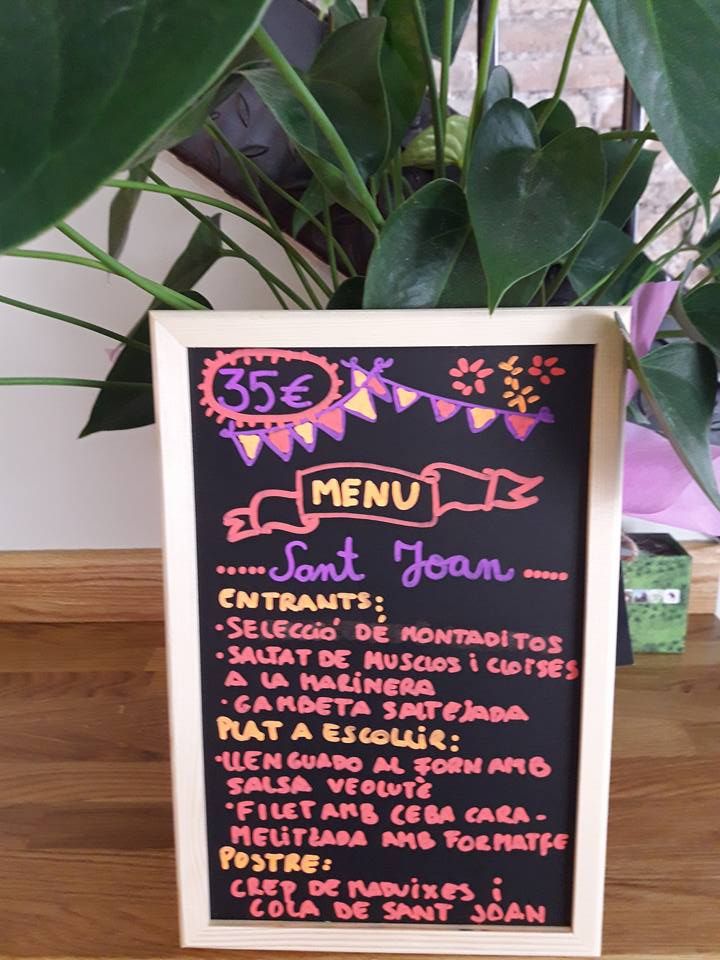 35€
MENU
..... Sant Joan .....
ENTRANTS:
·SELECCIÓ DE MONTADITOS
·SALTAT DE MUSCLOS i CLOÏSES
A LA MARINERA
·GAMBETA SALTEJADA
PLAT A ESCOLLIR:
·LLENGUADO AL FORN AMB
SALSA VEOLUTÉ
·FILET AMB CEBA CARA-
MELITZADA AMB FORMATGE
POSTRE:
CREP DE MADUIXES i
COLA DE SANT JOAN